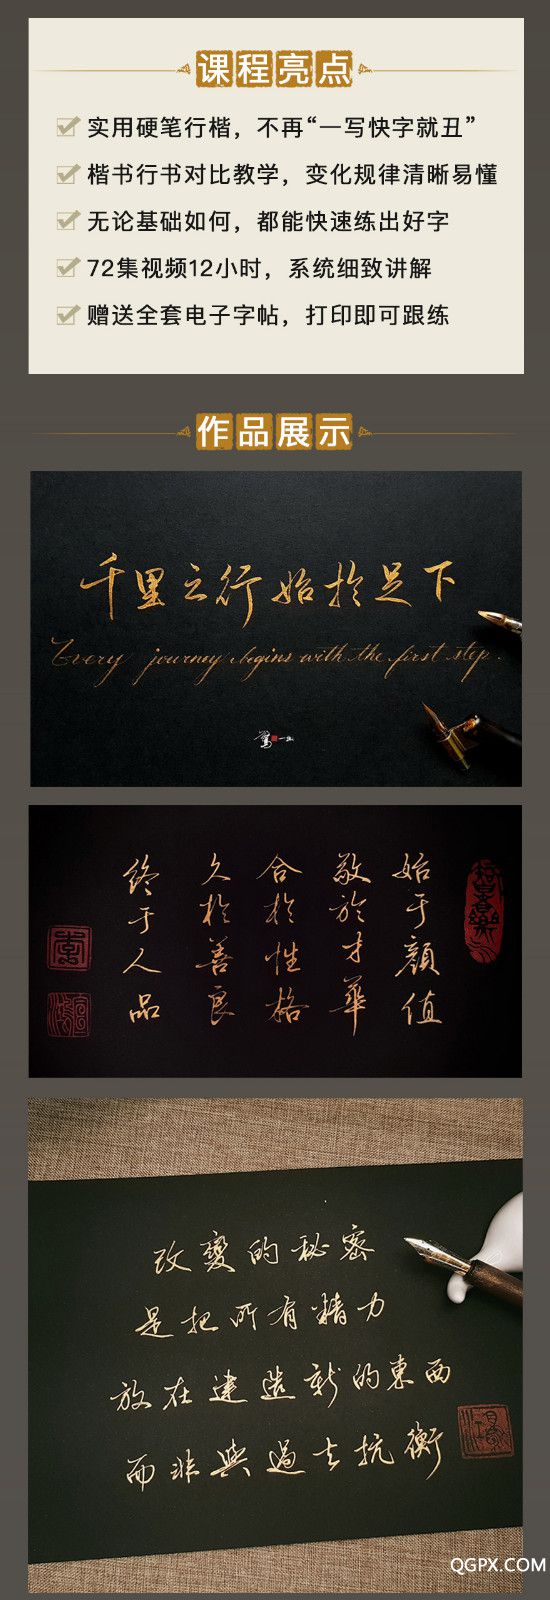 课程亮点
实用硬笔行楷，不再“一写快字就丑”
楷书行书对比教学，变化规律清晰易懂
无论基础如何，都能快速练出好字
72集视频12小时，系统细致讲解
赠送全套电子字帖，打印即可跟练
作品展示
千里之行始於足下
Every journey begins with the first step.
始于顏值
敬於才華
合於性格
久於善良
終于人品
改變的秘密
是把所有精力
放在建造新的東西
而非與過去抗衡
QGPX.COM